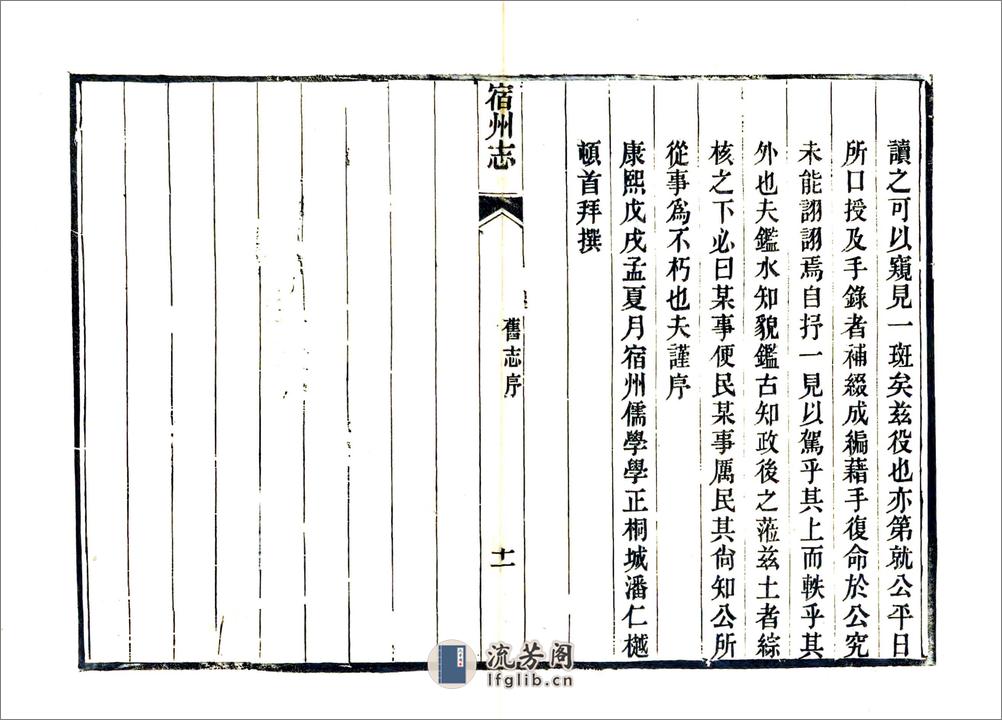 讀之可以窺見一斑矣茲役也亦第就公平日
所口授及手錄者補綴成編藉手復命於公究
未能詡詡焉自抒一見以駕乎其上而軼乎其
外也夫鑑水知貌鑑古知政後之蒞茲土者綜
核之下必曰某事便民某事厲民其尙知公所
從事爲不朽也夫謹序
康熙戊戌孟夏月宿州儒學學正桐城潘仁樾
頓首拜撰
宿州志
舊志序
十一
流芳阁
lfglib.cn